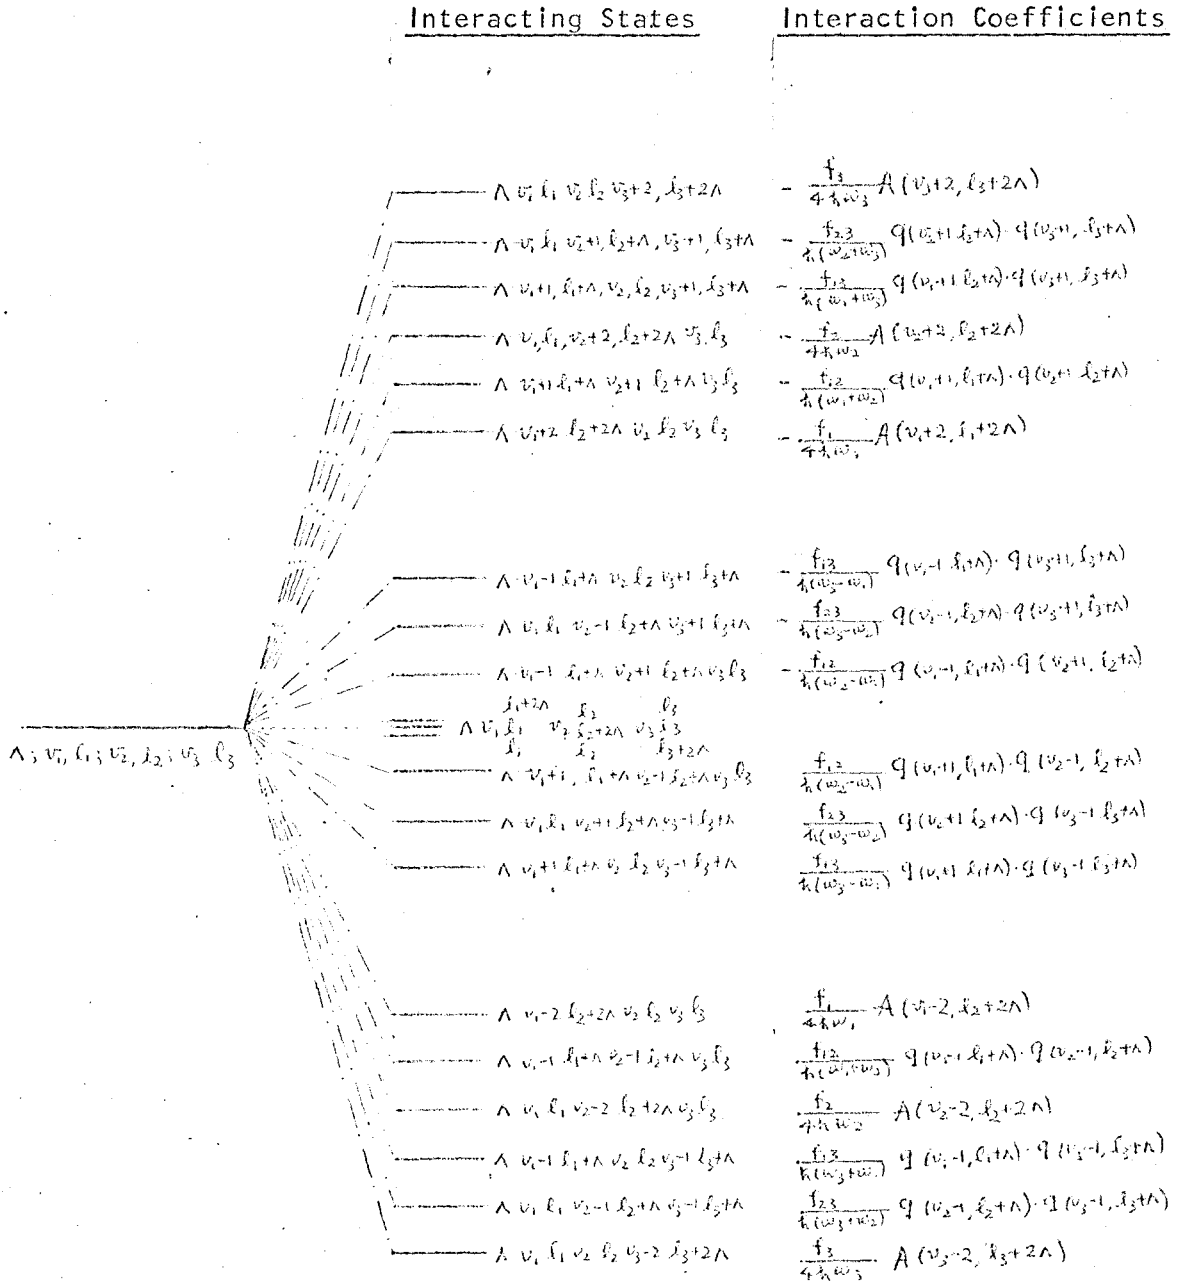 Interacting States Interaction Coefficients
Λ v₁ l₁ v₂ l₂ v₃+2, l₃+2Λ - f₃/4ħω₃ A(v₃+2, l₃+2Λ)
Λ v₁ l₁ v₂+1, l₂+Λ, v₃+1, l₃+Λ - f₂₃/ħ(ω₂+ω₃) q(v₂+1 l₂+Λ)·q(v₃+1, l₃+Λ)
Λ v₁+1, l₁+Λ, v₂, l₂, v₃+1, l₃+Λ - f₁₃/ħ(ω₁+ω₃) q(v₁+1 l₂+Λ)·q(v₃+1, l₃+Λ)
Λ v₁ l₁, v₂+2, l₂+2Λ v₃ l₃ - f₂/4ħω₂ A(v₂+2, l₂+2Λ)
Λ v₁+1 l₁+Λ v₂+1 l₂+Λ v₃ l₃ - f₁₂/ħ(ω₁+ω₂) q(v₁+1, l₁+Λ)·q(v₂+1 l₂+Λ)
Λ v₁+2 l₂+2Λ v₂ l₂ v₃ l₃ - f₁/4ħω₁ A(v₁+2, l₁+2Λ)
Λ v₁-1 l₁+Λ v₂ l₂ v₃+1 l₃+Λ - f₁₃/ħ(ω₃-ω₁) q(v₁-1 l₁+Λ)·q(v₃+1, l₃+Λ)
Λ v₁ l₁ v₂-1 l₂+Λ v₃+1 l₃+Λ - f₂₃/ħ(ω₃-ω₂) q(v₂-1, l₂+Λ)·q(v₃+1, l₃+Λ)
Λ v₁-1 l₁+Λ v₂+1 l₂+Λ v₃ l₃ - f₁₂/ħ(ω₂-ω₁) q(v₁-1, l₁+Λ)·q(v₂+1, l₂+Λ)
l₁+2Λ l₂ l₃
Λ v₁ l₁ v₂ l₂+2Λ v₃ l₃
l₁ l₂ l₃+2Λ
Λ; v₁, l₁; v₂, l₂; v₃ l₃
Λ v₁+1, l₁+Λ v₂-1 l₂+Λ v₃ l₃ f₁₂/ħ(ω₂-ω₁) q(v₁+1, l₁+Λ)·q(v₂-1, l₂+Λ)
Λ v₁ l₁ v₂+1 l₂+Λ v₃-1 l₃+Λ f₂₃/ħ(ω₃-ω₂) q(v₂+1 l₂+Λ)·q(v₃-1 l₃+Λ)
Λ v₁+1 l₁+Λ v₂ l₂ v₃-1 l₃+Λ f₁₃/ħ(ω₃-ω₁) q(v₁+1 l₁+Λ)·q(v₃-1 l₃+Λ)
Λ v₁-2 l₂+2Λ v₂ l₂ v₃ l₃ f₁/4ħω₁ A(v₁-2, l₂+2Λ)
Λ v₁-1 l₁+Λ v₂-1 l₂+Λ v₃ l₃ f₁₂ q(v₁-1 l₁+Λ)·q(v₂-1, l₂+Λ)
Λ v₁ l₁ v₂-2 l₂+2Λ v₃ l₃ f₂/4ħω₂ A(v₂-2, l₂+2Λ)
Λ v₁-1 l₁+Λ v₂ l₂ v₃-1 l₃+Λ f₁₃/ħ(ω₃+ω₁) q(v₁-1, l₁+Λ)·q(v₃-1, l₃+Λ)
Λ v₁ l₁ v₂-1 l₂+Λ v₃-1 l₃+Λ f₂₃/ħ(ω₃+ω₂) q(v₂-1, l₂+Λ)·q(v₃-1, l₃+Λ)
Λ v₁ l₁ v₂ l₂ v₃-2 l₃+2Λ f₃/4ħω₃ A(v₃-2, l₃+2Λ)